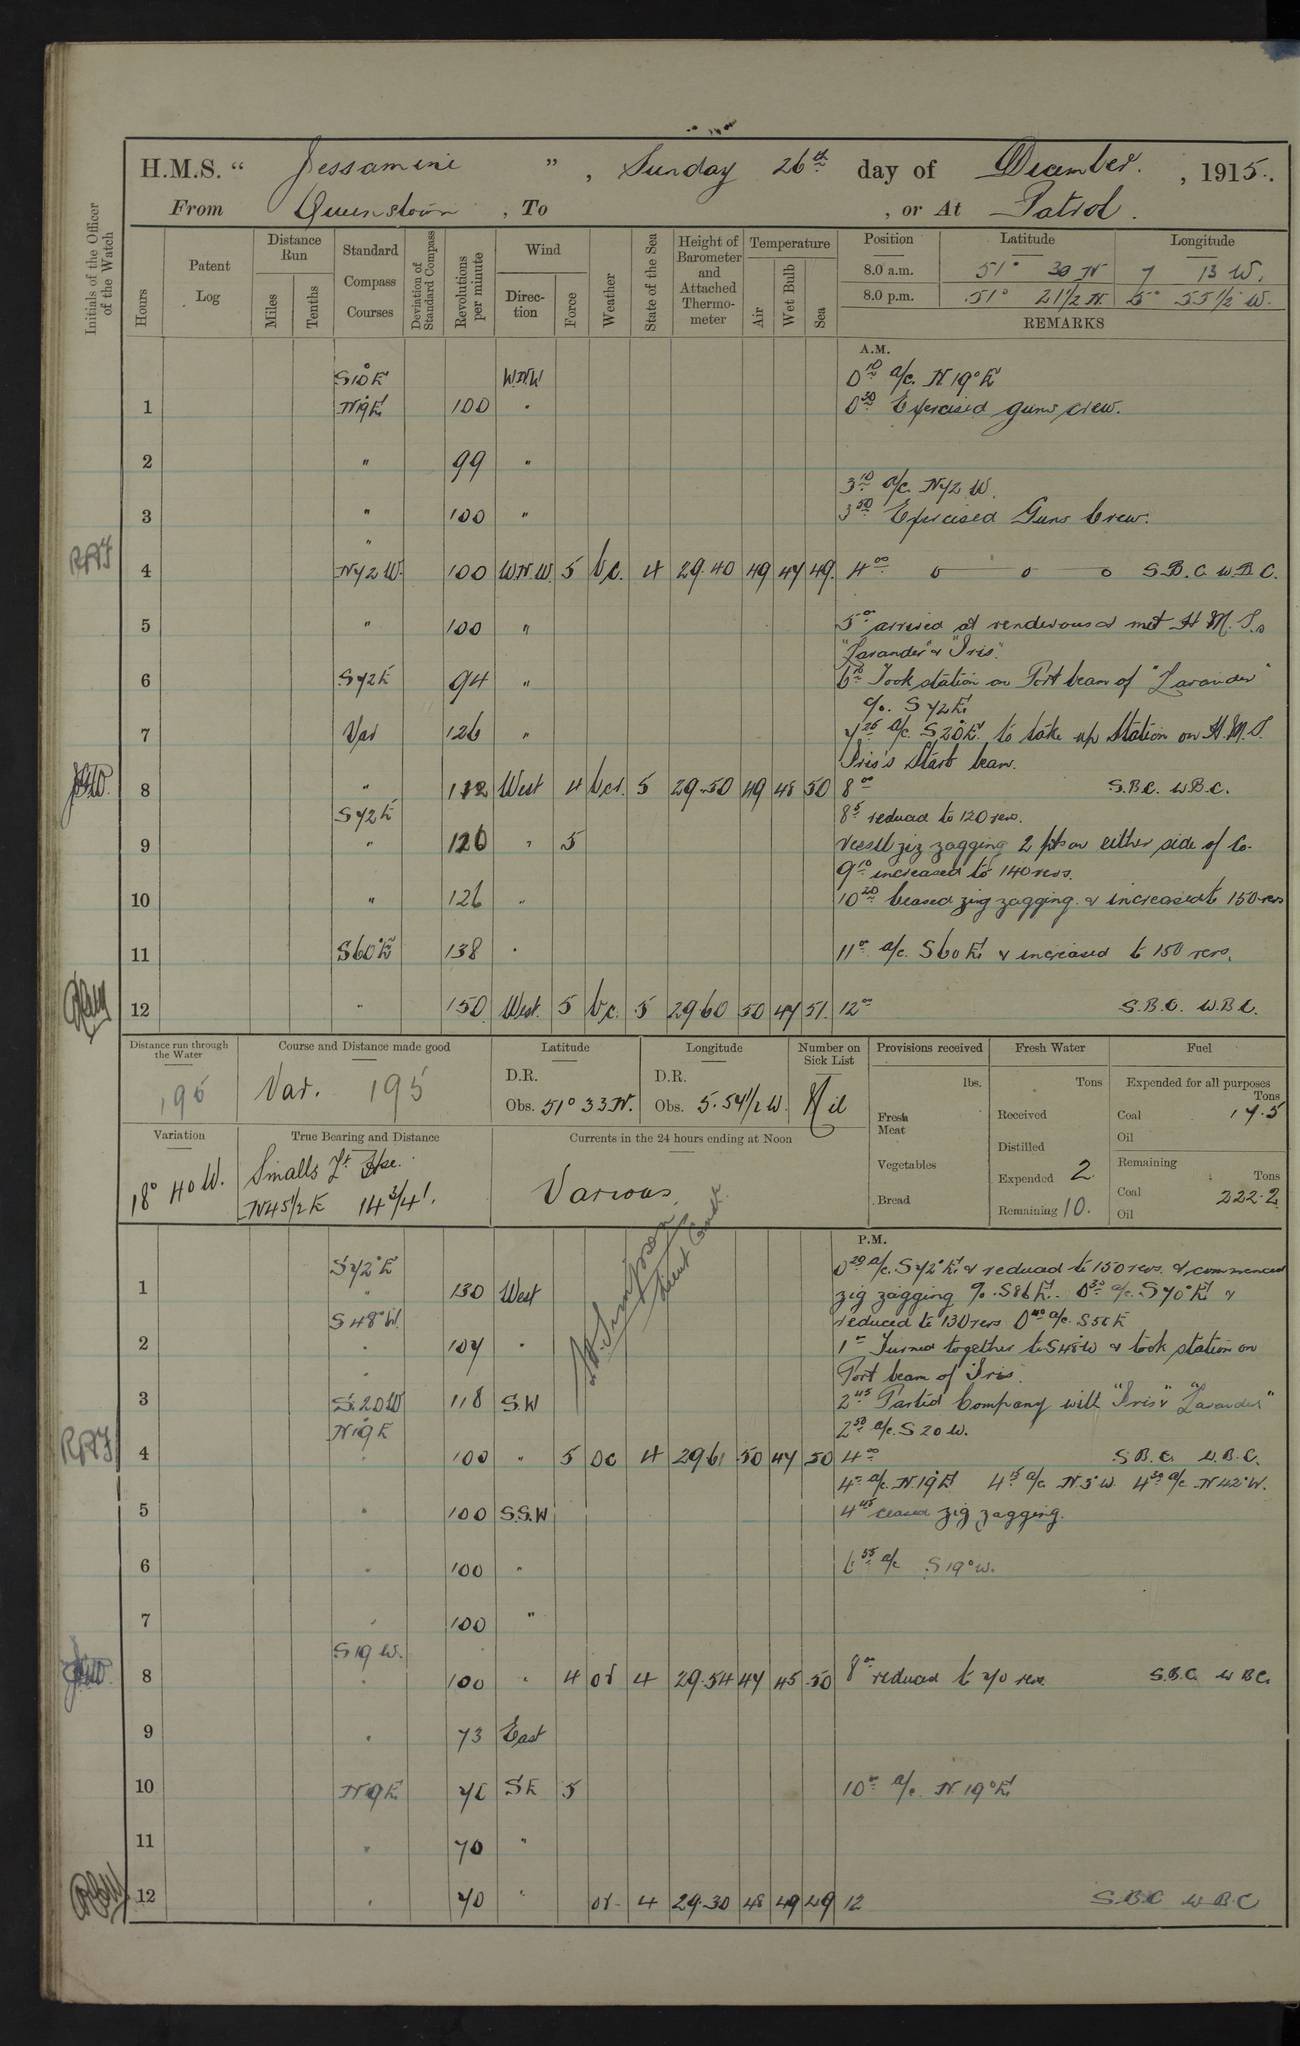 H.M.S. “ Jessamine ” , Sunday 26th day of December. , 1915.
From Queenstown , To , or At Patrol.
Initials of the Officer of the Watch
Hours
Patent Log
Distance Run
Miles
Tenths
Standard Compass Courses
Deviation of Standard Compass
Revolutions per minute
Wind
Direction
Force
Weather
State of the Sea
Height of Barometer and Attached Thermometer
Temperature
Air
Wet Bulb
Sea
Position Latitude Longitude
8.0 a.m. 51° 30 N 7 13 W.
8.0 p.m. 51° 21 1/2 N. 5° 55 1/2 W.
REMARKS
A.M.
S10°E WNW 0 10 a/c. N 19° E
1 N19E 100 " 0 30 Exercised guns crew.
2 " 99 "
3 10 a/c. N72 W.
3 " 100 " 3 50 Exercised Guns Crew.
"
4 N72 W. 100 W.N.W. 5 b.c. 4 29.40 49 47 49. 4 00 S.B.C. W.B.C.
5 " 100 " 5 00 arrived at rendevous & met H.M.S.s
"Lavander" & "Iris".
6 S72E 94 " 6 10 Took station on Port beam of "Lavander"
a/c. S72E
7 Var 126 " 7 25 a/c. S20°E. to take up Station on H.M.S.
Iris's Starb beam.
8 " 112 West 4 bcr. 5 29.50 49 48 50 8 00 S.B.C. W.B.C.
S72E 8 5 reduced to 120 revs.
9 " 120 " 5 vessel zig zagging 2 pts on either side of Co.
9 10 increased to 140 revs.
10 " 126 " 10 20 Ceased zig zagging & increased to 150 revs
11 S60°E 138 " 11 00 a/c. S60E & increased to 150 revs.
12 " 150 West. 5 b.c. 5 29.60 50 47 51. 12 00 S.B.C. W.B.C.
Distance run through the Water
195
Course and Distance made good
Var. 195
Latitude
D.R.
Obs. 51° 33 N.
Longitude
D.R.
Obs. 5. 54 1/2 W.
Number on Sick List
Nil
Provisions received
lbs.
Fresh Meat
Vegetables
Bread
Fresh Water
Tons
Received
Distilled
Expended 2
Remaining 10.
Fuel
Expended for all purposes
Tons
Coal 17.5
Oil
Remaining
Tons
Coal 222.2
Oil
Variation
18° 40 W.
True Bearing and Distance
Smalls Lt Hse.
N45 1/2 E 14 3/4'.
Currents in the 24 hours ending at Noon
Various.
P.M.
S72°E 0 20 a/c. S72°E. & reduced to 150 revs. & commenced
1 " 130 West zig zagging a/c. S86E. 0 30 a/c. S70°E &
S48°W. reduced to 130 revs 0 40 a/c. S56E
2 " 107 " 1 00 Turned together to S48°W & took station on
Port beam of Iris.
3 S.20W 118 S.W 2 45 Parted Company with "Iris" & "Lavander"
N19E 2 50 a/c. S20 W.
4 " 100 " 5 oc 4 29.61 50 47 50 4 00 S.B.C. W.B.C.
4 00 a/c. N.19°E 4 15 a/c. N.5°W. 4 30 a/c. N42°W.
5 " 100 S.S.W 4 45 ceased zig zagging.
6 " 100 " 6 55 a/c S19°W.
7 " 100 "
S19 W.
8 " 100 " 4 or 4 29.54 47 45 50 8 00 reduced to 70 revs. S.B.C. W.B.C.
9 " 73 East
10 N19E. 71 SE 5 10 00 a/c. N. 19°E
11 " 70 "
12 " 70 " or 4 29.30 48 49 49 12 S.B.C W.B.C